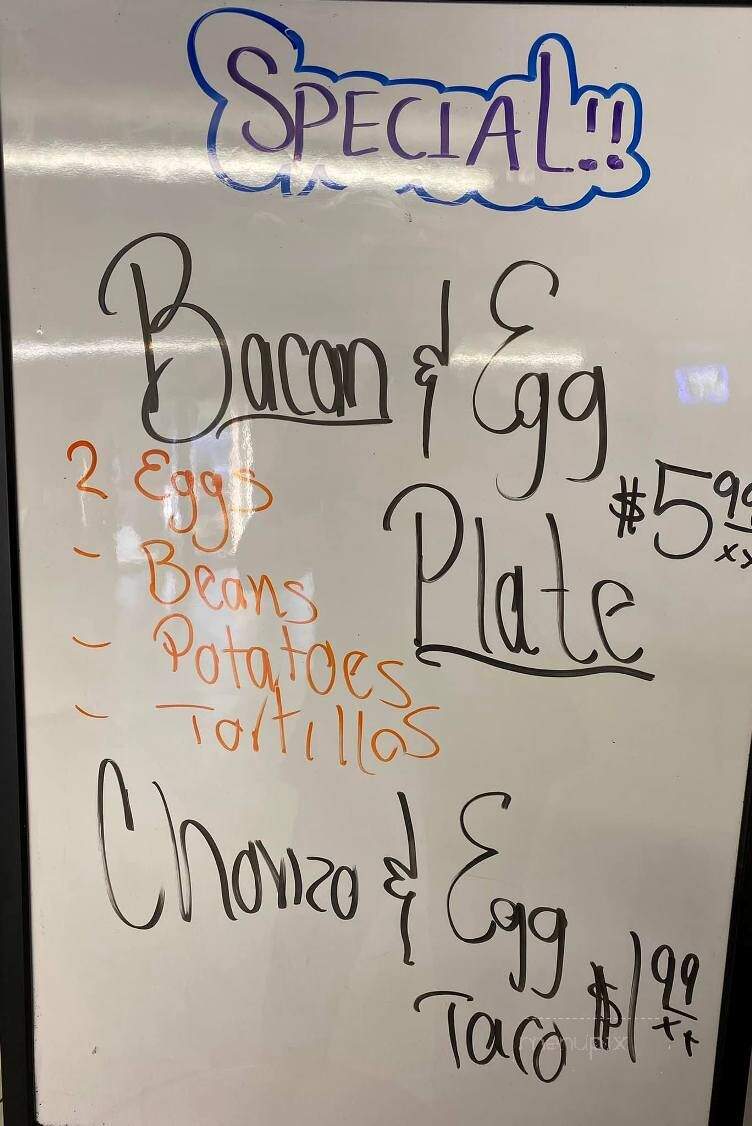 SPECIAL!!
Bacon & Egg
Plate $5.99
xx
2 Eggs
- Beans
- Potatoes
- Tortillas
Chorizo & Egg
Taco $1.99
xx
menupix